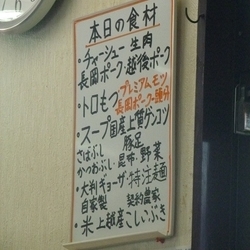 本日の食材
・チャーシュー生肉
長岡ポーク・越後ポーク
・トロもつ プレミアムモツ
長岡ポーク一頭分
・スープ国産上質ゲンコツ
豚足
さばぶし
かつおぶし・昆布・野菜
・大判ギョーザ・特注麺
自家製 契約農家
・米 上越産こしいぶき